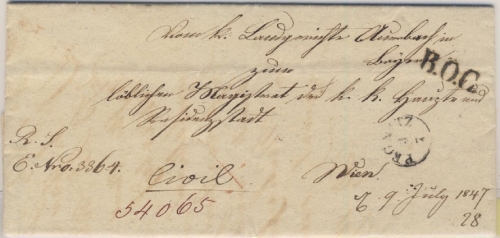 Vom k. Landgerichte Auerbach in
Bayern
B.O.C.
zum
löblichen Magistrat der k. k. Haupt und
Residenzstadt
R. S.
E. Nro. 3364.
Civil
Wien
54065
E 9 July 1847
28